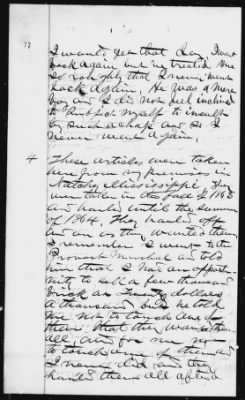 I would get that day. I was
back again but he treated me
so roughly that I never went
back again. He was a mere
boy and I did not feel inclined
to subject myself to insult
by such a chap and so I
never went again.
4 These articles were taken
here from my premises in
Natchez Mississippi. They
were taken in the fall of 1863
and hauled until the summer
of 1864. They hauled off
and on as they wanted them
I remember I went to the
Provost Marshal and told
him that I had an opportu-
nity to sell a few thousand
brick at dollars
a thousand and he told
me not to touch one of
them that they wanted them
all, and for me not
to touch one of them and
I never did and they
hauled them all after a